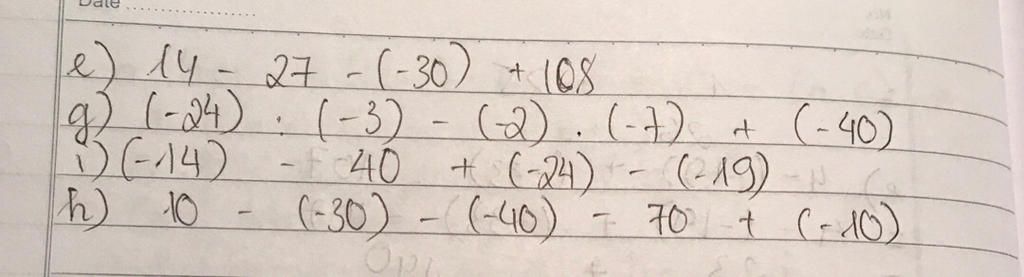 Date
e) 14 - 27 - (-30) + 108
g) (-24) : (-3) - (-2) . (-7) + (-40)
i) (-14) - 40 + (-24) - (-19)
h) 10 - (-30) - (-40) - 70 + (-10)